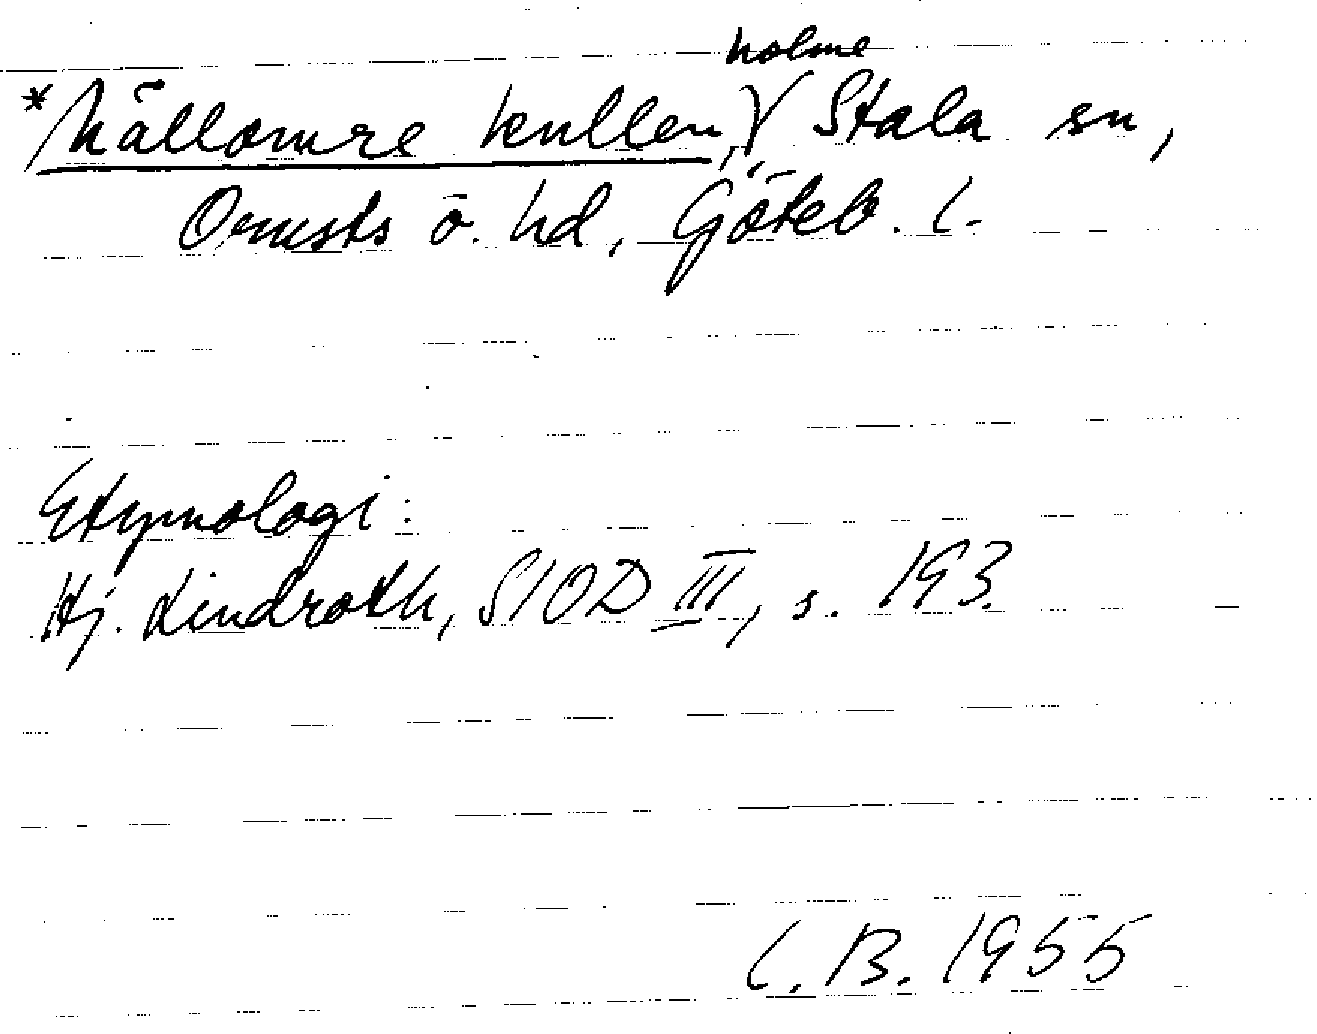 holme
*Mällomre kullen, Stala sn,
Orusts ö. hd, Göteb. l.
Etymologi:
Hj. Lindroth, SIOD III, s. 193.
C. B. 1955